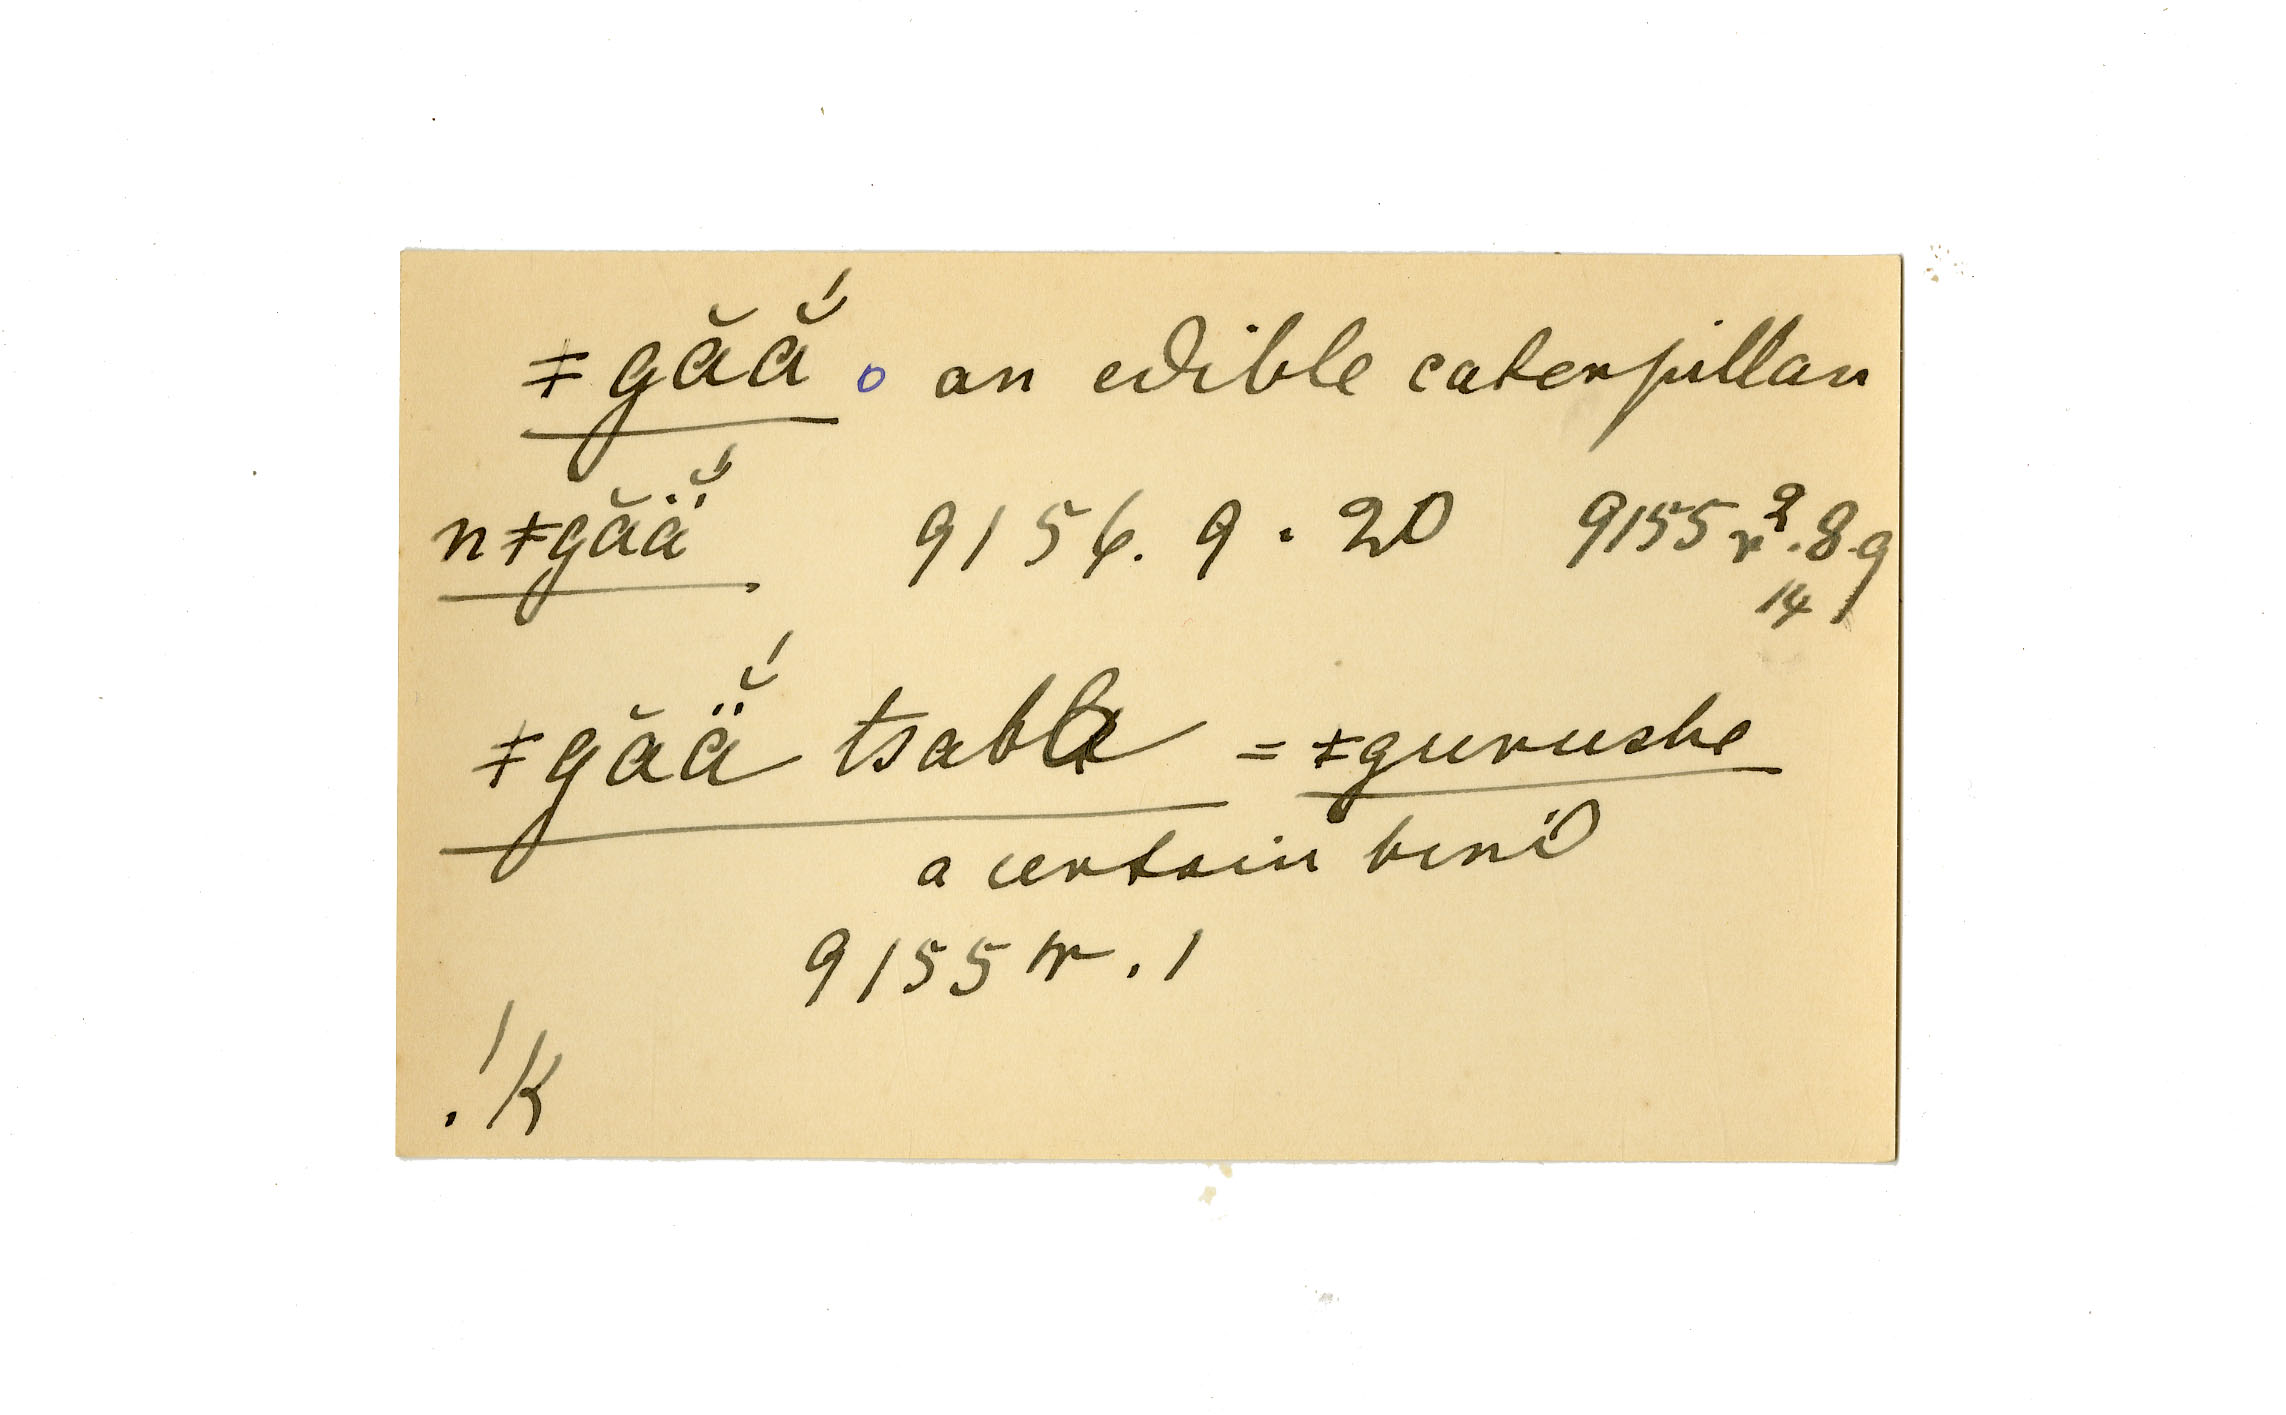 ǂgăắ o an edible caterpillar
nǂgăä̆́ 9156. 9. 20 9155 r². 8. 9
14
ǂgăä̆́ = ǂgurushe
a certain bird
9155 r. 1
. !K